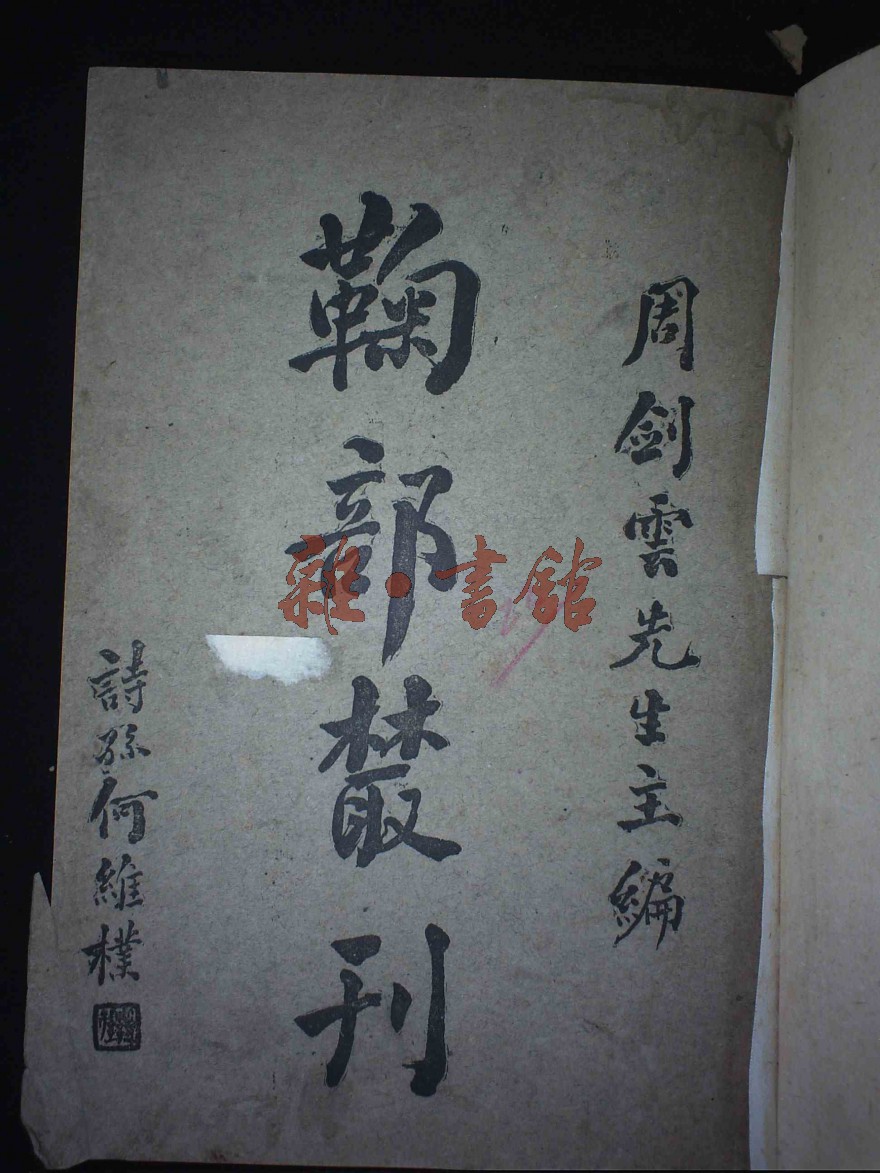 周剑雲先生主編
鞠部叢刊
詩孫何維樸
雜·書館